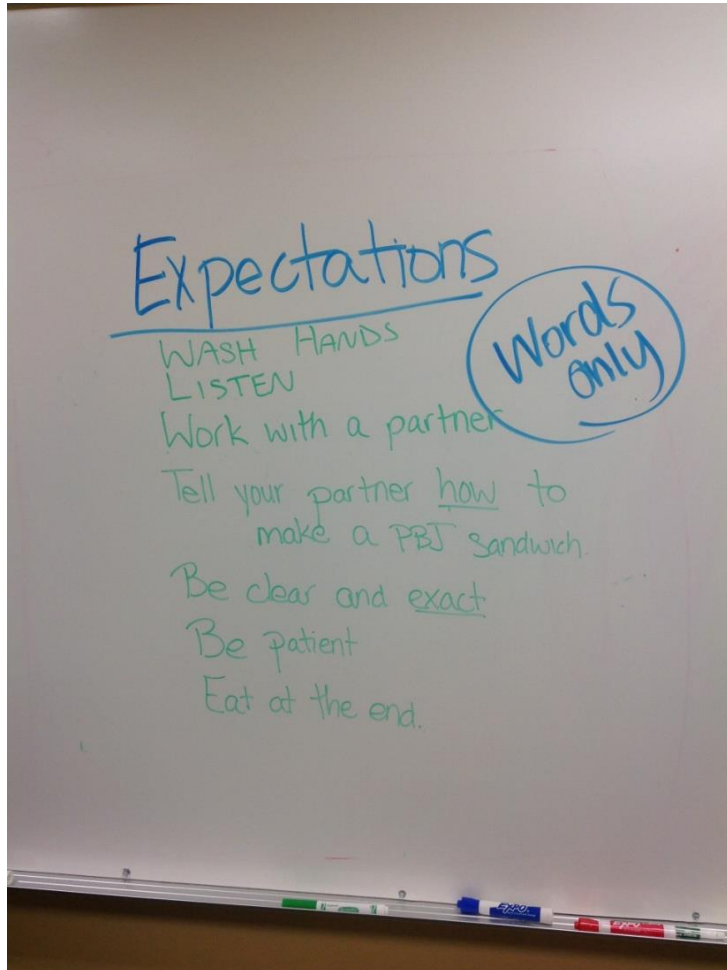 Expectations
Words
only
WASH HANDS
LISTEN
Work with a partner
Tell your partner how to
make a PBJ sandwich.
Be clear and exact
Be patient
Eat at the end.
EXPO
EXPO